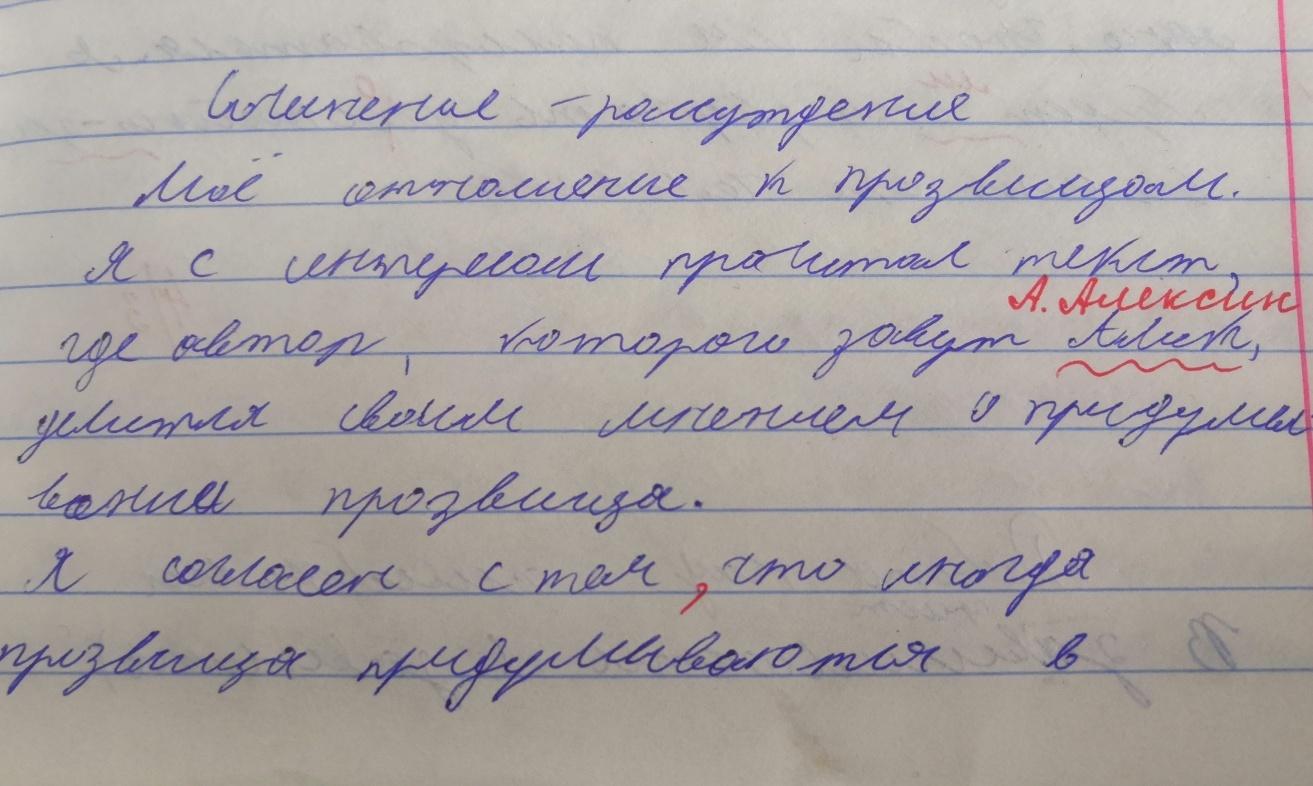 Сочинение - рассуждения
Моё отношение к прозвищам.
Я с интересом прочитал текст,
А. Алексин
где автор, которого зовут Алик,
делится своим мнением о придумы
вании прозвища.
Я согласен с тем, что иногда
прозвища придумываются в